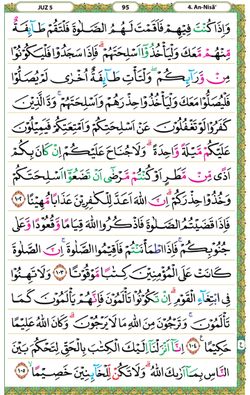 JUZ 5
95
4. An-Nisā'
وَإِذَا كُنتَ فِيهِمْ فَأَقَمْتَ لَهُمُ ٱلصَّلَوٰةَ فَلْتَقُمْ طَآئِفَةٌ
مِّنْهُم مَّعَكَ وَلْيَأْخُذُوٓا۟ أَسْلِحَتَهُمْ فَإِذَا سَجَدُوا۟ فَلْيَكُونُوا۟
مِن وَرَآئِكُمْ وَلْتَأْتِ طَآئِفَةٌ أُخْرَىٰ لَمْ يُصَلُّوا۟
فَلْيُصَلُّوا۟ مَعَكَ وَلْيَأْخُذُوا۟ حِذْرَهُمْ وَأَسْلِحَتَهُمْ وَدَّ ٱلَّذِينَ
كَفَرُوا۟ لَوْ تَغْفُلُونَ عَنْ أَسْلِحَتِكُمْ وَأَمْتِعَتِكُمْ فَيَمِيلُونَ
عَلَيْكُم مَّيْلَةً وَٰحِدَةً وَلَا جُنَاحَ عَلَيْكُمْ إِن كَانَ بِكُمْ
أَذًى مِّن مَّطَرٍ أَوْ كُنتُم مَّرْضَىٰٓ أَن تَضَعُوٓا۟ أَسْلِحَتَكُمْ
وَخُذُوا۟ حِذْرَكُمْ إِنَّ ٱللَّهَ أَعَدَّ لِلْكَٰفِرِينَ عَذَابًا مُّهِينًا ١٠٢
فَإِذَا قَضَيْتُمُ ٱلصَّلَوٰةَ فَٱذْكُرُوا۟ ٱللَّهَ قِيَٰمًا وَقُعُودًا وَعَلَىٰ
جُنُوبِكُمْ فَإِذَا ٱطْمَأْنَنتُمْ فَأَقِيمُوا۟ ٱلصَّلَوٰةَ إِنَّ ٱلصَّلَوٰةَ
كَانَتْ عَلَى ٱلْمُؤْمِنِينَ كِتَٰبًا مَّوْقُوتًا ١٠٣ وَلَا تَهِنُوا۟
فِى ٱبْتِغَآءِ ٱلْقَوْمِ إِن تَكُونُوا۟ تَأْلَمُونَ فَإِنَّهُمْ يَأْلَمُونَ كَمَا
تَأْلَمُونَ وَتَرْجُونَ مِنَ ٱللَّهِ مَا لَا يَرْجُونَ وَكَانَ ٱللَّهُ عَلِيمًا
حَكِيمًا ١٠٤ إِنَّآ أَنزَلْنَآ إِلَيْكَ ٱلْكِتَٰبَ بِٱلْحَقِّ لِتَحْكُمَ بَيْنَ
ٱلنَّاسِ بِمَآ أَرَىٰكَ ٱللَّهُ وَلَا تَكُن لِّلْخَآئِنِينَ خَصِيمًا ١٠٥